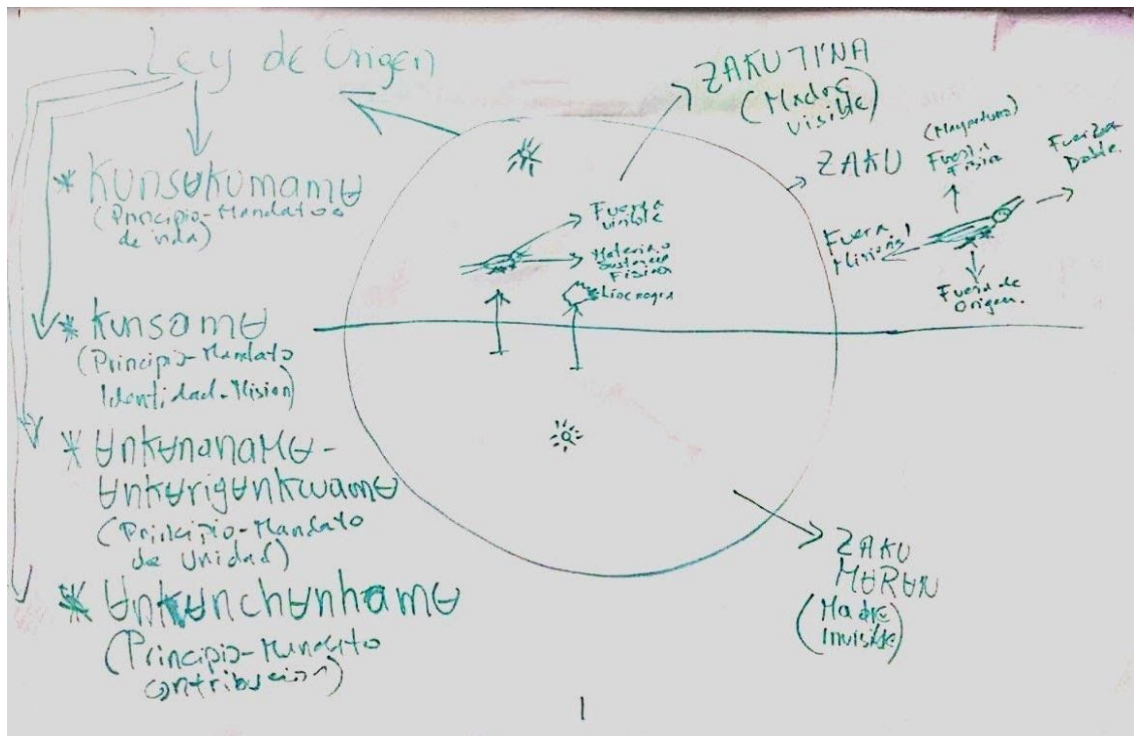 Ley de Origen
* KUNSɄKUMAMɄ
(Principio-Mandato
de vida)
* KUNSAMɄ
(Principio-Mandato
Identidad-Mision)
* ɄnkɄnanaMɄ-
ɄnkɄrigɄnkwamɄ
(Principio-Mandato
de Unidad)
* ɄnkɄnchɄnhamɄ
(Principio-Mandato
contribucion)
ZAKU TI'NA
(Madre
visible)
ZAKU
Fuerza
visible
Materia o
Sustancia
Fisica
(Mayordomo)
Fuerza
Fisica
Fuerza
Doble.
Fuerza
Misional
Fuerza de
Origen.
ZAKU
MɄRɄN
(Madre
Invisible)
1